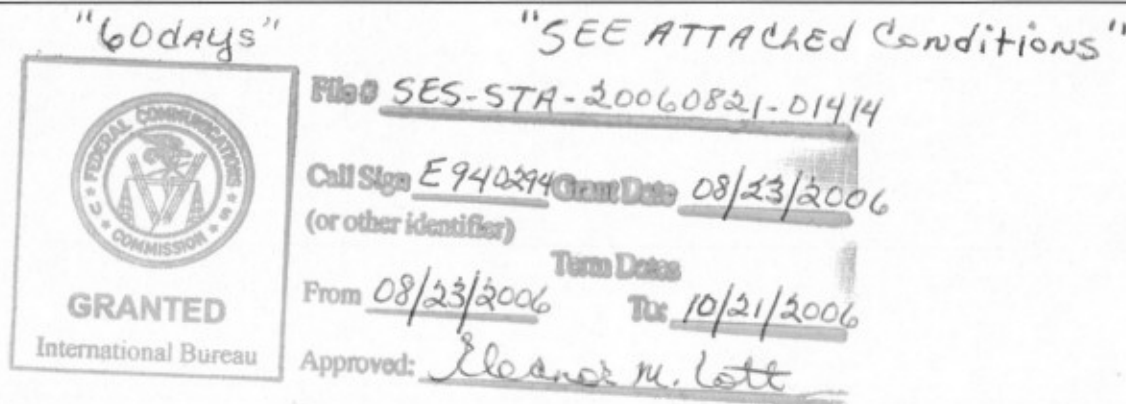 "60 days"
"SEE ATTAChEd Conditions"
FEDERAL COMMUNICATIONS COMMISSION
GRANTED
International Bureau
File # SES-STA-20060821-01414
Call Sign E940294 Grant Date 08/23/2006
(or other identifier)
Term Dates
From 08/23/2006 To: 10/21/2006
Approved: Eleanor M. Lott